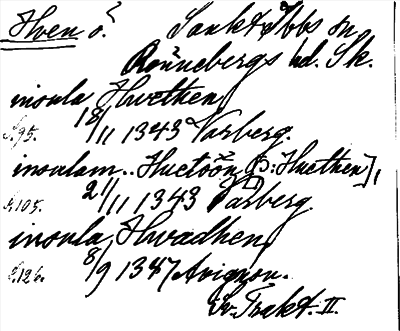 Hven ö. Sankt Ibbs sn
Rönnebergs hd. Sk.
insula Hwethen
s. 95. 18/11 1343 Varberg.
insulam.. Huetöön [ɔ: Huethen],
s. 105. 21/11 1343 Varberg.
insula Hwadhen
s. 126. 8/9 1347 Avignon.
Sv. Trakt. II.